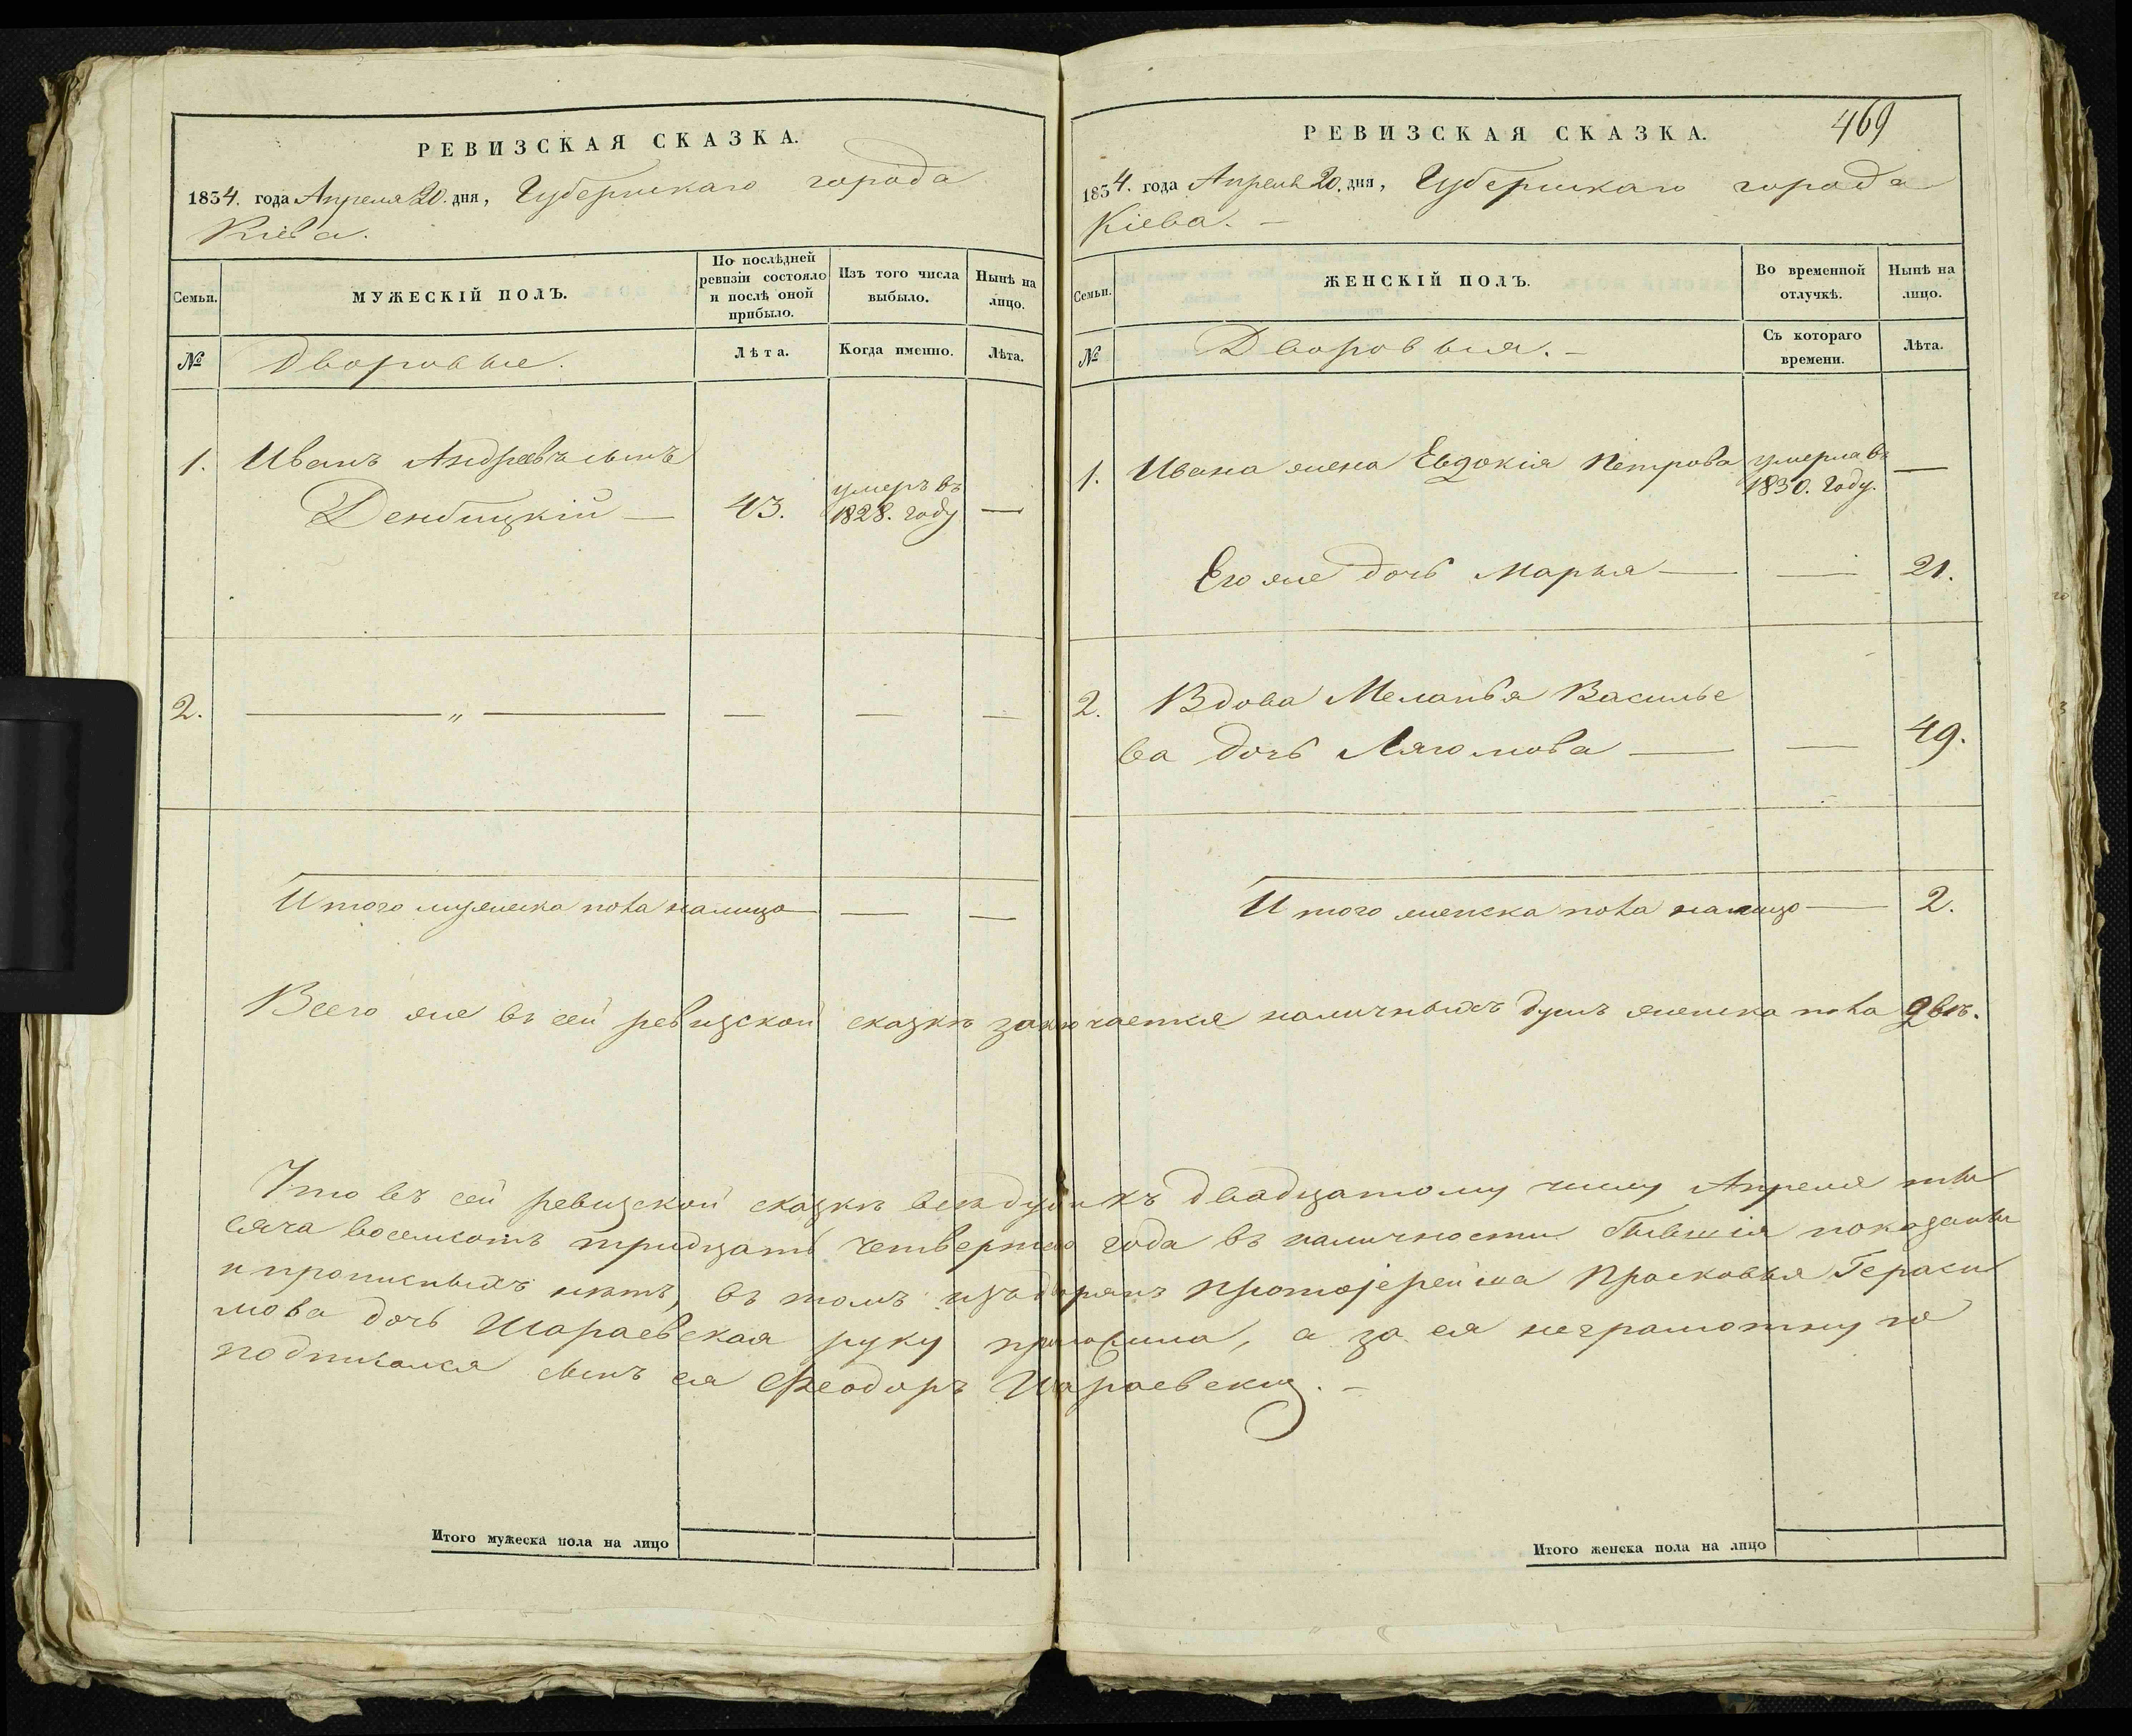 РЕВИЗСКАЯ СКАЗКА.
1834. года Апреля 20. дня, Губернскаго города
Кіева.
Семьи.
МУЖЕСКІЙ ПОЛЪ.
По послѣдней
ревизіи состояло
и послѣ оной
прибыло.
Изъ того числа
выбыло.
Нынѣ на
лицо.
№
Дворовые.
Лѣта.
Когда именно.
Лѣта.
1. Иванъ Андреевъ сынъ
Дембицкій — 43. умеръ въ
1828. году —
2. — „ — — — —
Итого мужеска пола налицо — — —
Итого мужеска пола на лицо
469
РЕВИЗСКАЯ СКАЗКА.
1834. года Апреля 20. дня, Губернскаго города
Кіева. —
Семьи.
ЖЕНСКІЙ ПОЛЪ.
Во временной
отлучкѣ.
Нынѣ на
лицо.
№
Дворовыя. —
Съ котораго
времени.
Лѣта.
1. Ивана жена Евдокія Петрова умерла въ
1830. году. —
Его же дочь Марья — — 21.
2. Вдова Меланья Василье
ва дочь — — 49.
Итого женска пола налицо — 2.
Всего же въ сей ревизской сказкѣ заключается наличныхъ душъ женска пола двѣ.
Что въ сей ревизской сказкѣ всѣ души къ двадцатому числу Апреля ты
сяча восемсотъ тридцать четвертаго года въ наличности бывшія показаны
и прописныхъ нѣтъ, въ томъ изъ дворянъ протоіерейша Прасковья Гераси
мова дочь Шараевская руку приложила, а за ея неграмотную
подписался сынъ ея Феодоръ Шараевскій. —
Итого женска пола на лицо